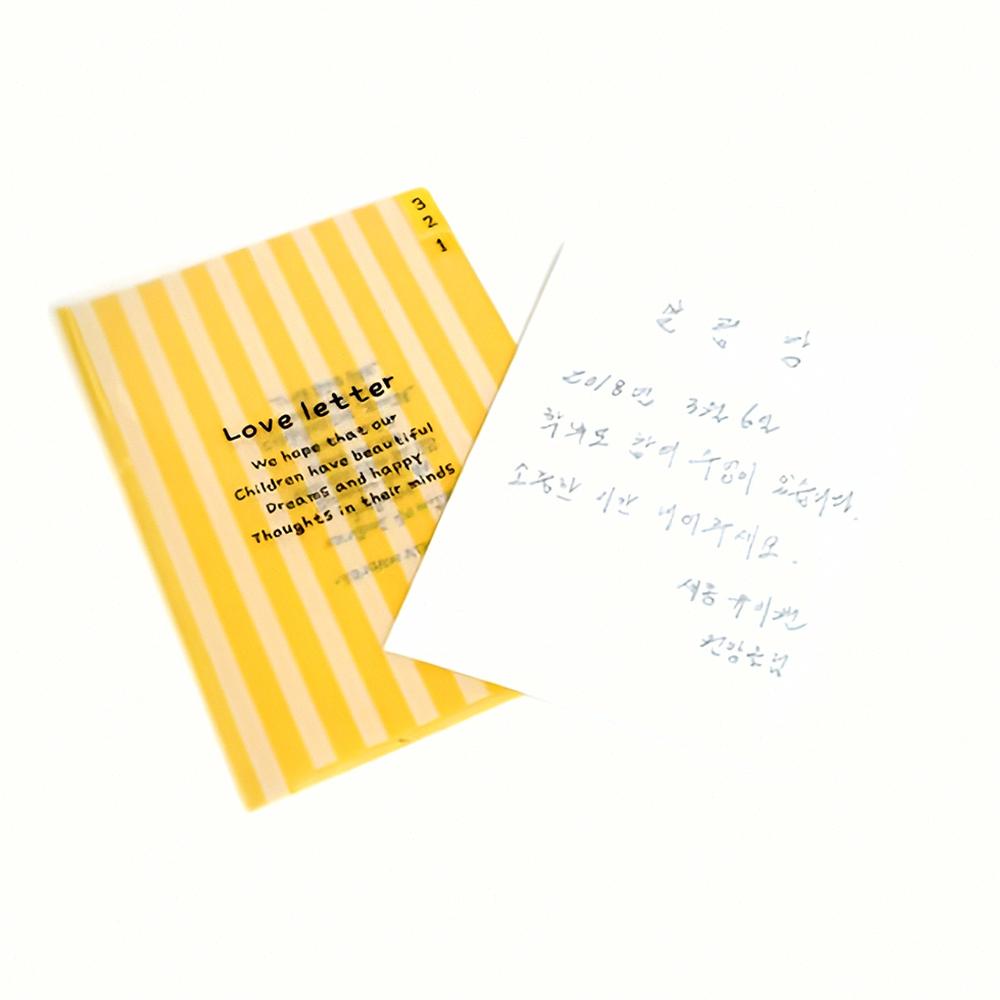 3
2
1
Love letter
We hope that our
Children have beautiful
Dreams and happy
Thoughts in their minds
2018년 3월 6일
학부모 참여 수업이 있습니다.
소중한 시간 내어주세요.
세종 유치원